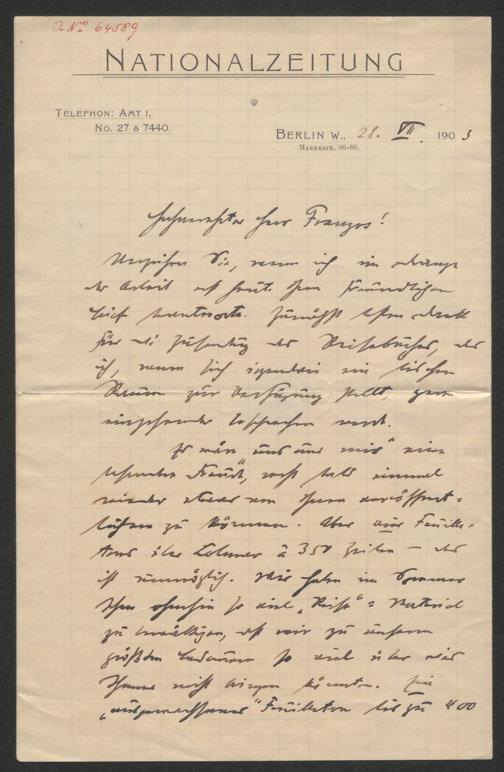 I.N. 64589
NATIONALZEITUNG
TELEPHON: AMT I,
No. 27 & 7440.
BERLIN W., 28. VII. 1903
MAUERSTR. 86-88.
Sehr verehrter Herr Franzos!
Verzeihen Sie, wenn ich im Drange
der Arbeit erst heute Ihren freundlichen
Brief beantworte. Zunächst besten Dank
für die Zusendung des Reisebuches, das
ich, wenn sich irgendwie ein bischen
Raum zur Verfügung stellt, gern
eingehender besprechen werde.
Es wäre uns und mir eine
besondere Freude, recht bald einmal
wieder etwas von Ihnen veröffent-
lichen zu können. Aber vier Feuille-
tons über Colmar à 350 Zeilen – das
ist unmöglich. Wir haben im Sommer
schon ohnehin so viel „Reise"-Material
zu bewältigen, daß wir zu unserem
größten Bedauern so viel über ein
Thema nicht bringen könnten. Ein
„ausgewachsenes" Feuilleton bis zu 400